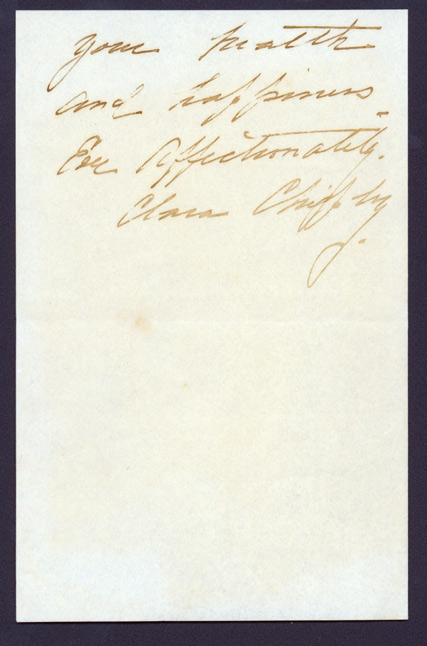 your health
and happiness -
Ever Affectionately.
Clara Chipley.